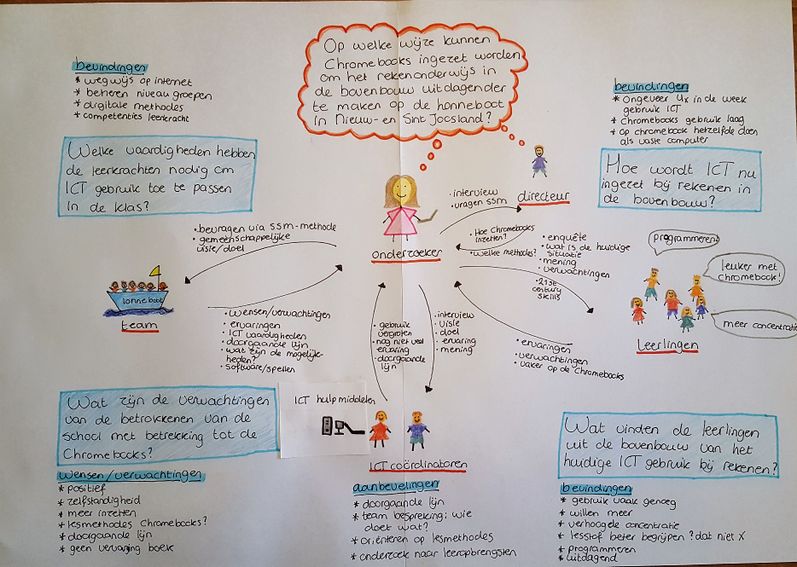 Op welke wijze kunnen
Chromebooks ingezet worden
om het rekenonderwijs in
de bovenbouw uitdagender
te maken op de honneboot
in Nieuw- en Sint Joosland?
bevindingen
* wegwijs op internet
* beheren niveau groepen
* digitale methodes
* competenties leerkracht
Welke vaardigheden hebben
de leerkrachten nodig om
ICT gebruik toe te passen
in de klas?
bevindingen
* Ongeveer 4x in de week
gebruik ICT
* Chromebooks gebruik laag
* Op chromebook hetzelfde doen
als vaste computer
Hoe wordt ICT nu
ingezet bij rekenen in
de bovenbouw?
directeur
• interview
• vragen ssm
• Hoe Chromebooks
inzetten?
• welke methodes?
onderzoeker
• bevragen via ssm-methode
• gemeenschappelijke
visie/doel
team
• wensen/verwachtingen
• ervaringen
• ICT vaardigheden
• doorgaande lijn
• wat zijn de mogelijk-
heden?
• software/spellen
• enquête
• wat is de huidige
situatie
• mening
• verwachtingen
• 21st
century
skills
programmeren
leuker met
chromebook!
meer concentratie
leerlingen
• ervaringen
• verwachtingen
• vaker op de Chromebooks
• gebruik
vergroten
• nog niet veel
ervaring
• doorgaande
lijn
• interview
• visie
• doel
• ervaring
• mening
ICT hulpmiddelen
ICT coördinatoren
Wat zijn de verwachtingen
van de betrokkenen van de
school met betrekking tot de
Chromebooks?
wensen/verwachtingen
* positief
* zelfstandigheid
* meer inzetten
* lesmethodes Chromebooks?
* doorgaande lijn
* geen vervanging boek
aanbevelingen
* doorgaande lijn
* team bespreking: wie
doet wat?
* oriënteren op lesmethodes
* onderzoek naar leeropbrengsten
Wat vinden de leerlingen
uit de bovenbouw van het
huidige ICT gebruik bij rekenen?
bevindingen
* gebruik vaak genoeg
* willen meer
* verhoogde concentratie
* lesstof beter begrijpen? dat niet X
* programmeren
* uitdagend